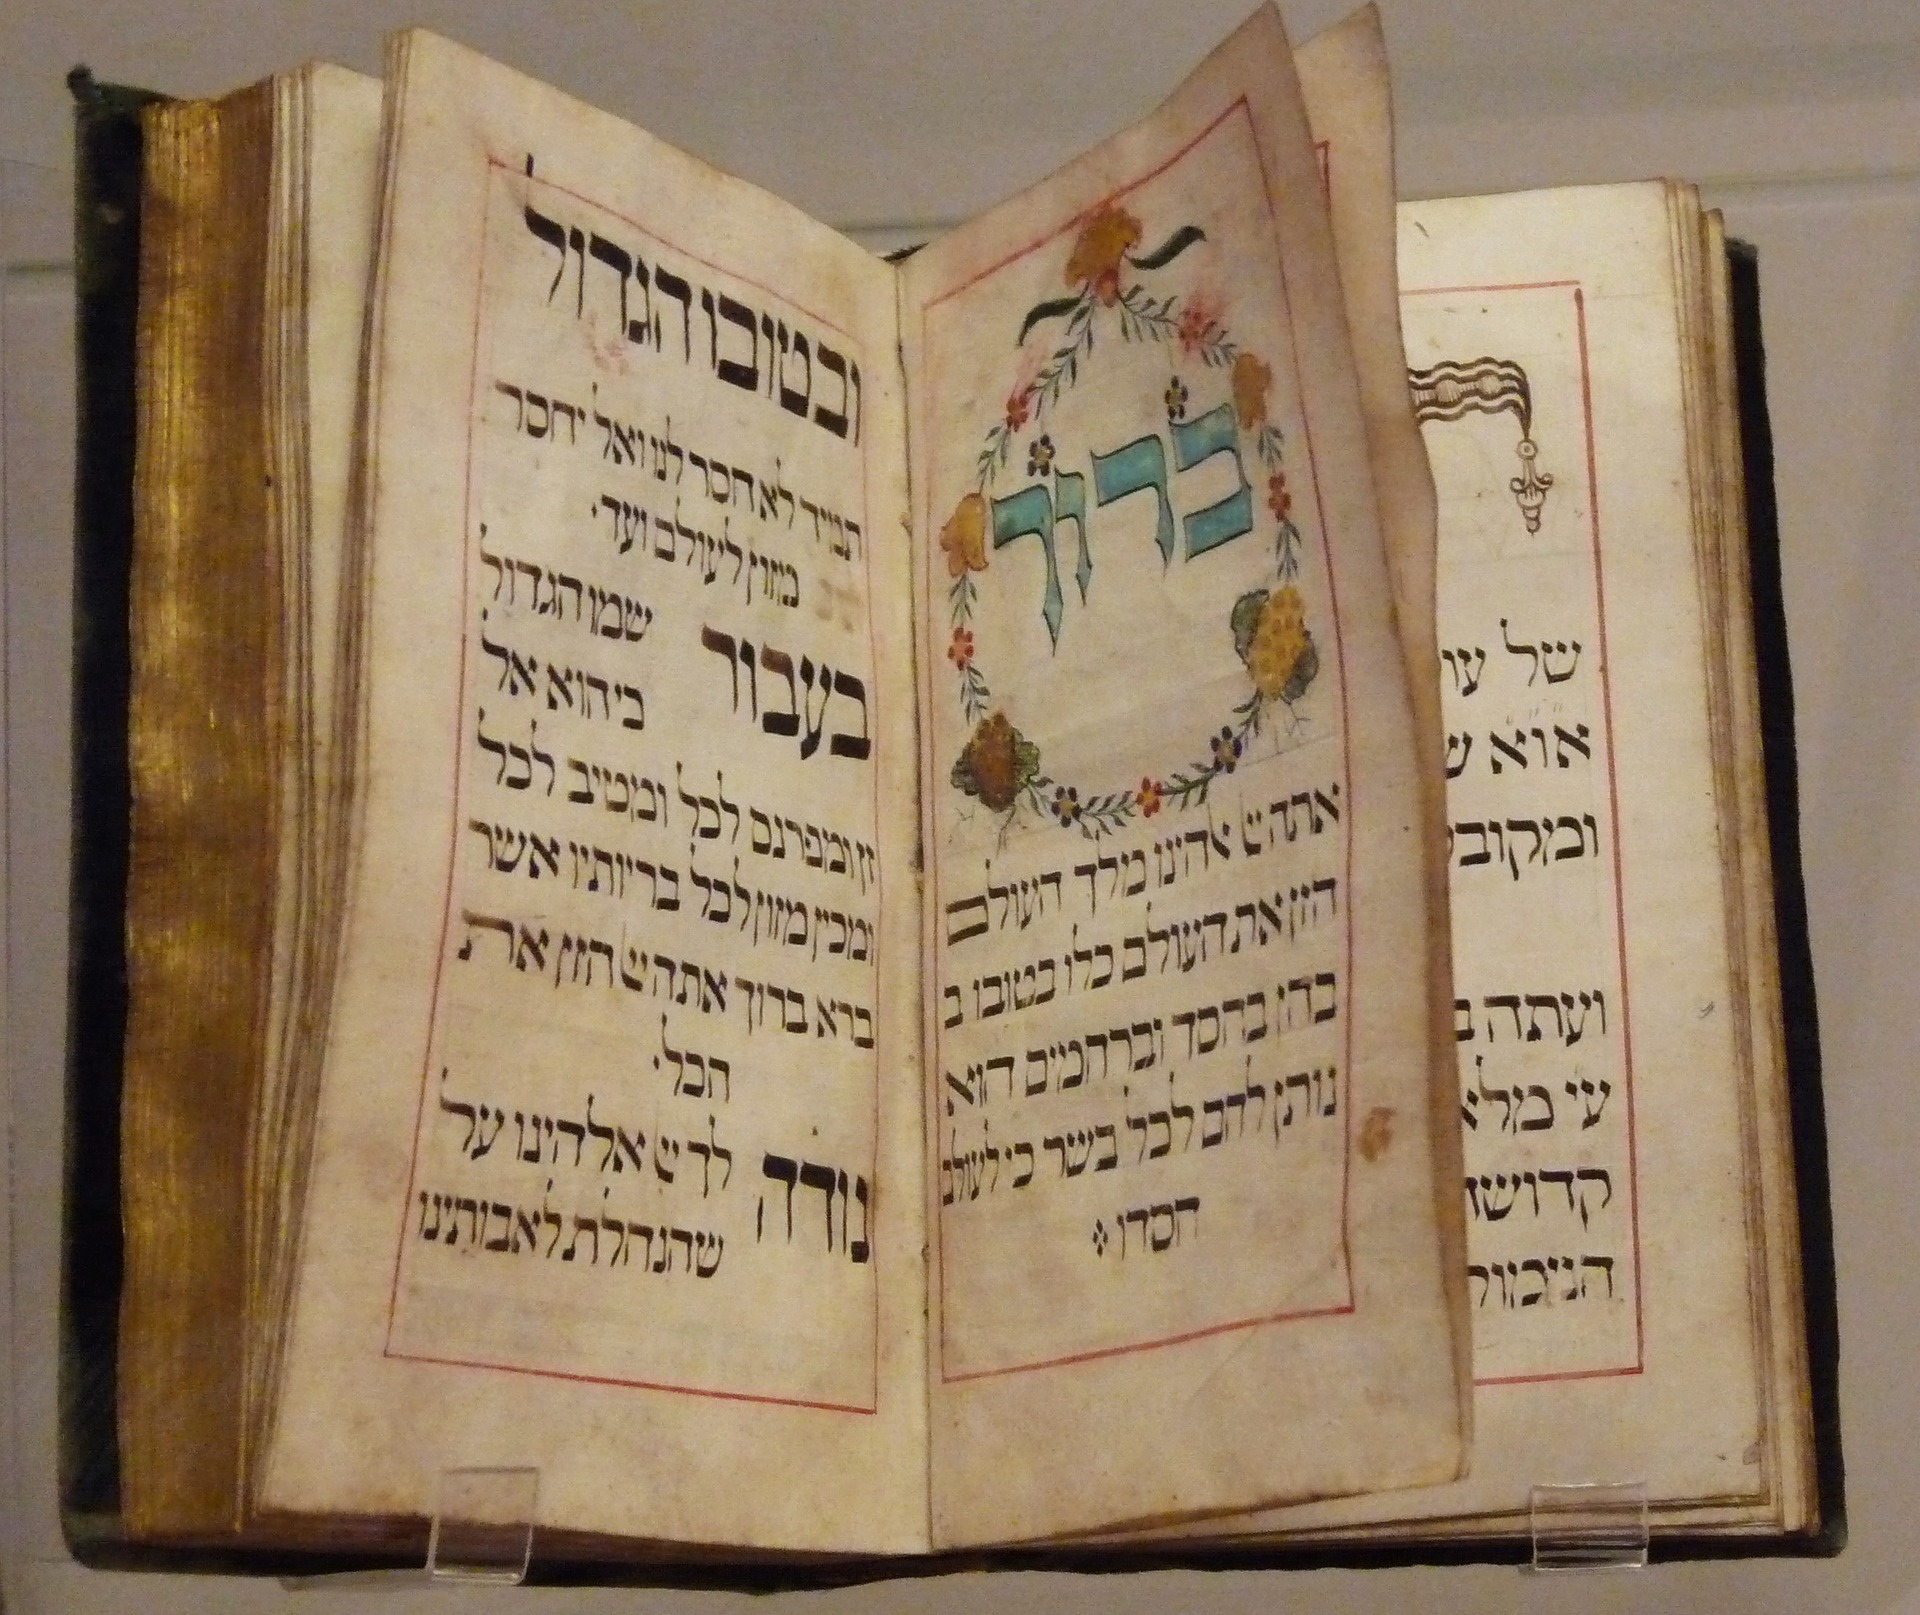 ברוך
אתה יי אלהינו מלך העולם
הזן את העולם כלו בטובו ב
בחן בחסד וברחמים הוא
נותן להם לכל בשר כי לעולם
חסדו
ובטובו הגדול
תמיד לא חסר לנו ואל יחסר
מזון לעולם ועד
בעבור שמו הגדול
כי הוא אל
זן ומפרנס לכל ומטיב לכל
ומכין מזון לכל בריותיו אשר
ברא ברוך אתה יי הזן את
הכל
נודה לך יי אלהינו על
שהנחלת לאבותינו
של
אוא
ועתה
עי